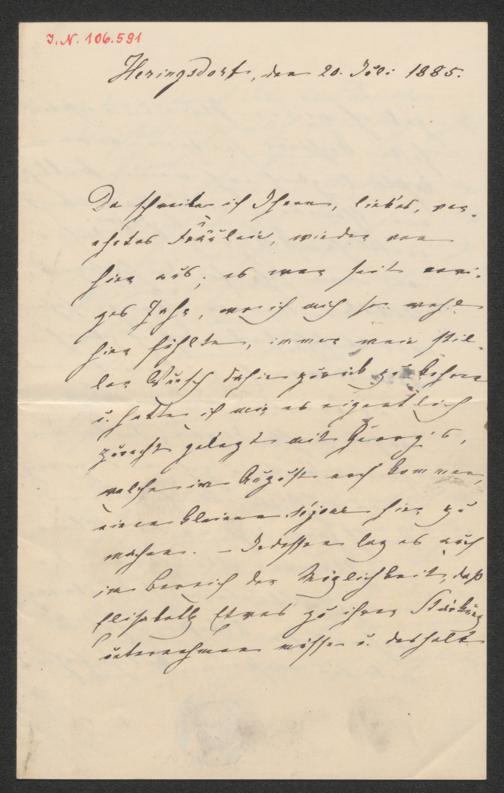 J.N. 106.591
Heringsdorf, den 20. Juli 1885.
Da schreibe ich Ihnen, liebes, ver-
ehrtes Fräulein, wieder von
hier aus; es war seit vori-
ges Jahr, wo ich mich so wohl
hier fühlte, immer mein stil-
ler Wunsch dahin zurück zu kehren
u. hatte ich mir es eigentlich
zurecht gelegt mit Georg's,
welche im August noch kommen,
einen kleinen séjour hier zu
machen. – Indessen lag es auch
im Bereich der Möglichkeit, daß
Elisabeth Etwas zu ihrer Stärkung
unternehmen müsse u. deshalb